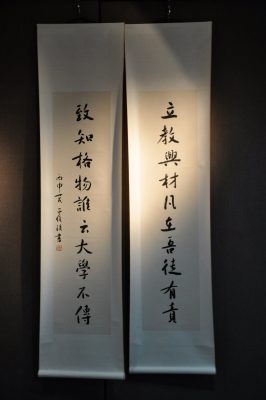 立教興材凡在吾徒有責
致知格物誰云大學不傳
丙申